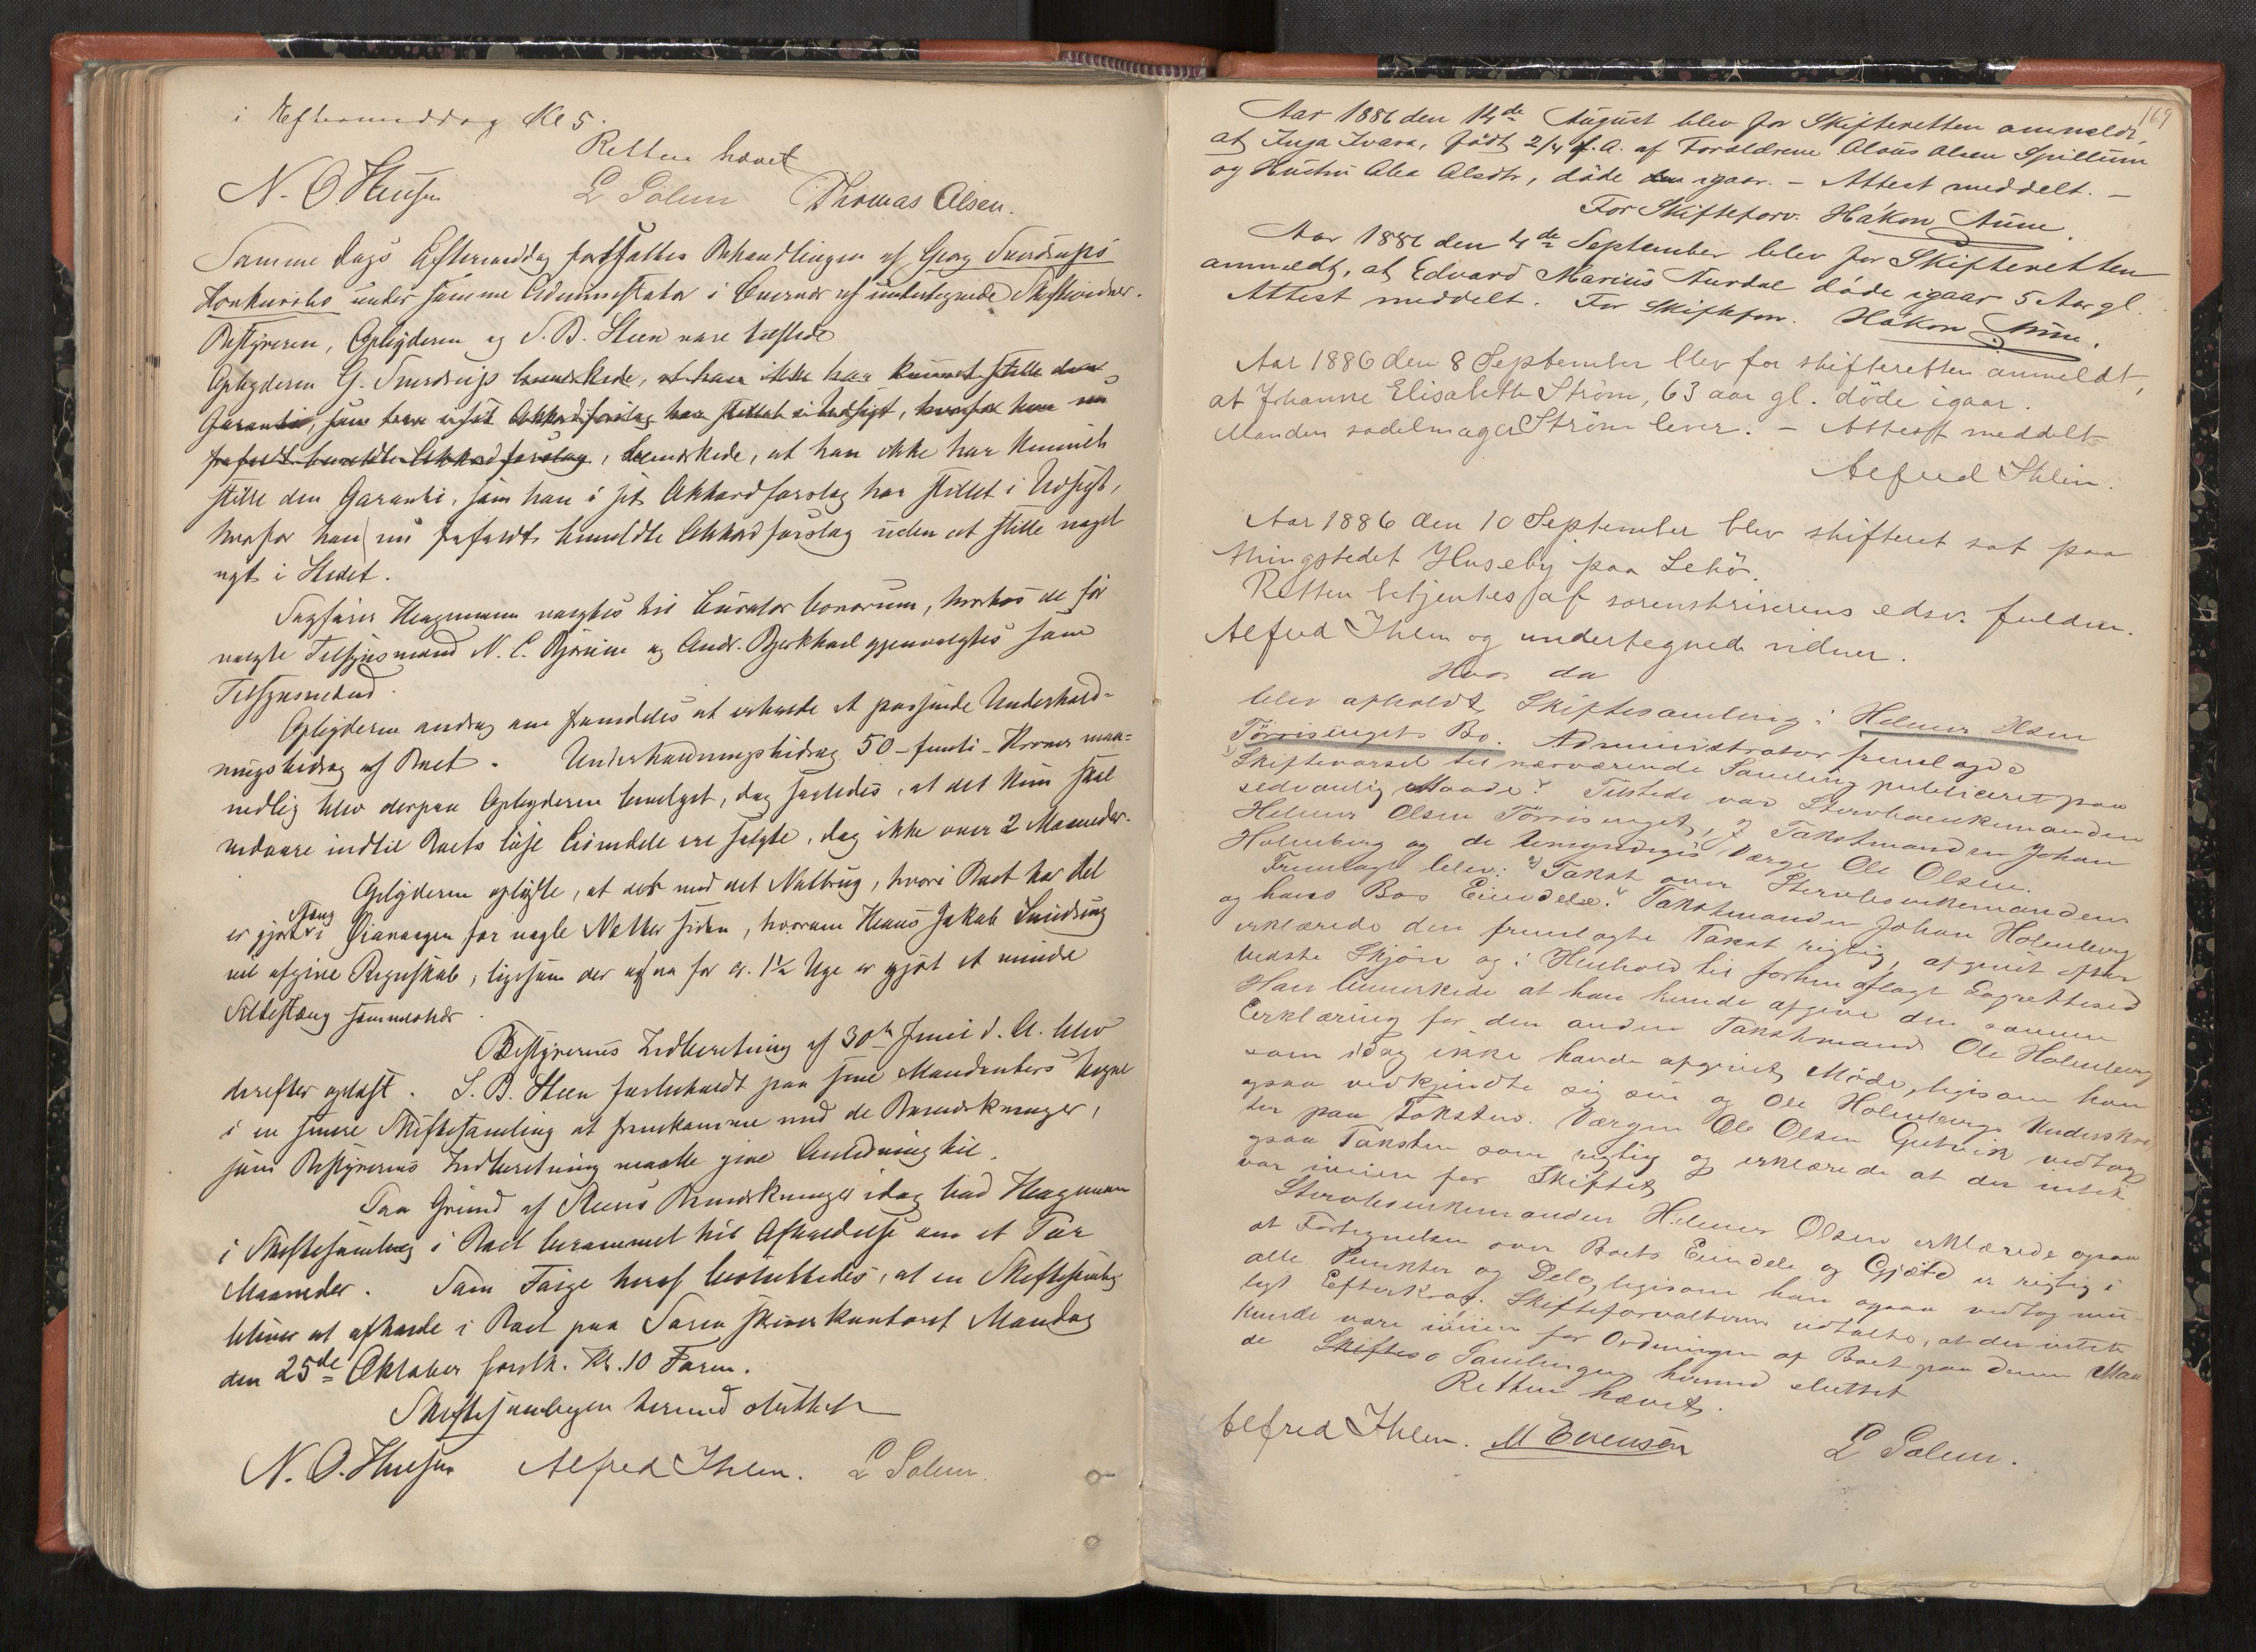 i Eftermiddag Kl 5.
Retten hævet
N. O. Huusen L Solem Thomas Olsen.
Samme Dags Eftermiddag fortsattes Behandlingen af Georg Sverdrups
Konkursbo under samme Administrator i Overvær af undertegnede Skiftevidner.
Bestyreren, Opbyderen og S. B. Steen vare tilstede
Opbyderen G. Sverdrup bemærkede, at han ikke har kunnet stille den
Garanti, som han i sit Akkordforslag har stillet i Udsigt, hvorfor han nu
frafaldt anmeldte Akkordforslag, bemærkede, at han ikke har kunnet
stille den Garanti, som han i sit Akkordforslag har stillet i Udsigt,
hvorfor han nu frafaldt anmeldte Akkordforslag uden at stille noget
nyt i Stedet.
Sagfører Hagemann valgtes til Curator bonorum, hvorhos de før
valgte Tilsynsmænd N. C. og Andr. gjenvalgtes som
Tilsynsmænd.
Opbyderen androg om fremdeles at erholde et passende Underhold-
ningsbidrag af Boet. Underholdningsbidrag 50 - femti - Kroner maa-
nedlig blev derpaa Opbyderen bevilget, dog saaledes, at det kun skal
vedvare indtil Boets løse Eiendele ere solgte, dog ikke over 2 Maaneder.
Opbyderen oplyste, at der med det Notbrug, hvori Boet har Del
Stæng
er gjort i for nogle Netter siden, hvorom Hans Jakob
vil afgive Regnskab, ligesom der ogsaa for ca. 1½ Uge er gjort et mindre
Sildestæng sammesteds.
Bestyrerens Indberetning af 30te Juni d. A. blev
derefter oplæst. S. B. Steen forbeholdt paa sine Mandanters Vegne
i en senere Skiftesamling at fremkomme med de Bemærkninger,
som Bestyrerens Indberetning maatte give Anledning til.
Paa Grund af Steens Bemærkninger idag bad Hagemann
i Skiftesamling i Boet berammet til Afholdelse om et Par
Maaneder. Som Følge heraf besluttedes, at en Skiftesamling
bliver at afholde i Boet paa Sorenskriverkontoret Mandag
den 25de Oktober førstk. Kl. 10 Form.
Skiftesamlingen dermed sluttet
N. O. Huusen Alfred Ihlen. L Solem.
169
Aar 1886 den 14de August blev for Skifteretten anmeldt,
at Inga Ivara, født 2/4 d. A. af Forældrene Olaus Olsen Spillum
og Hustru Olea Olsdtr, døde den igaar. - Attest meddelt. -
For Skifteforv. Håkon Aune.
Aar 1886 den 4de September blev for Skifteretten
anmeldt, at Edvard Marius Aurdal døde igaar 5 Aar gl.
Attest meddelt. For Skifteforv. Håkon Aune.
Aar 1886 den 8 September blev for skifteretten anmeldt,
at Johanne Elisabeth Strøm, 63 aar gl. døde igaar.
Manden sadelmager Strøm lever. - Attest meddelt
Alfred Ihlen.
Aar 1886 den 10 September blev skifteret sat paa
thingstedet Huseby paa Lekø.
Retten betjentes af sorenskriverens edsv. fuldm.
Alfred Ihlen og undertegnede vidner.
Hvor da
blev afholdt Skiftesamling i Helmer Olsen
Tørrisengets Bo. Administrator fremlagde
1) Skiftevarsel til nærværende Samling publiceret paa
sedvanlig Maade. Tilstede var Stervboenkemanden
Helmer Olsen Tørrisenget, Takstmanden Johan
Holmberg og de Umyndiges Værge Ole Olsen.
Fremlagt blev: 2) Takst over Stervboenkemandens
og hans Bos Eiendele. Takstmanden Johan Holmberg
erklærede den fremlagte Takst rigtig, afgivet efter
bedste Skjøn og i Henhold til forhen aflagt Lagrettesed
Han bemerkede at han kunde afgive den samme
Eerklæring for den anden Takstmand Ole Holmberg
som idag ikke havde afgivet Møde, ligesom han
ogsaa vedkjendte sig sin og Ole Holmbergs Underskrif
ter paa Taksten. Værgen Ole Olsen Gutvik vedtog
ogsaa Taksten som rigtig og erklærede at der intet
var iveien for Skiftet
Stervboenkemanden Helmer Olsen erklærede ogsaa
at Fortegnelsen over Boets Eiendele og Gjæld er rigtig i
alle Punkter og Dele, ligesom han ogsaa vedtog mu
ligt Efterkrav. Skifteforvalteren udtalte, at der intet
kunde være iveien for Ordningen af Boet paa denne Maa
de Skifteso Samlingen hermed sluttet
Retten hævet.
Alfred Ihlen. M Evensen L Solem.